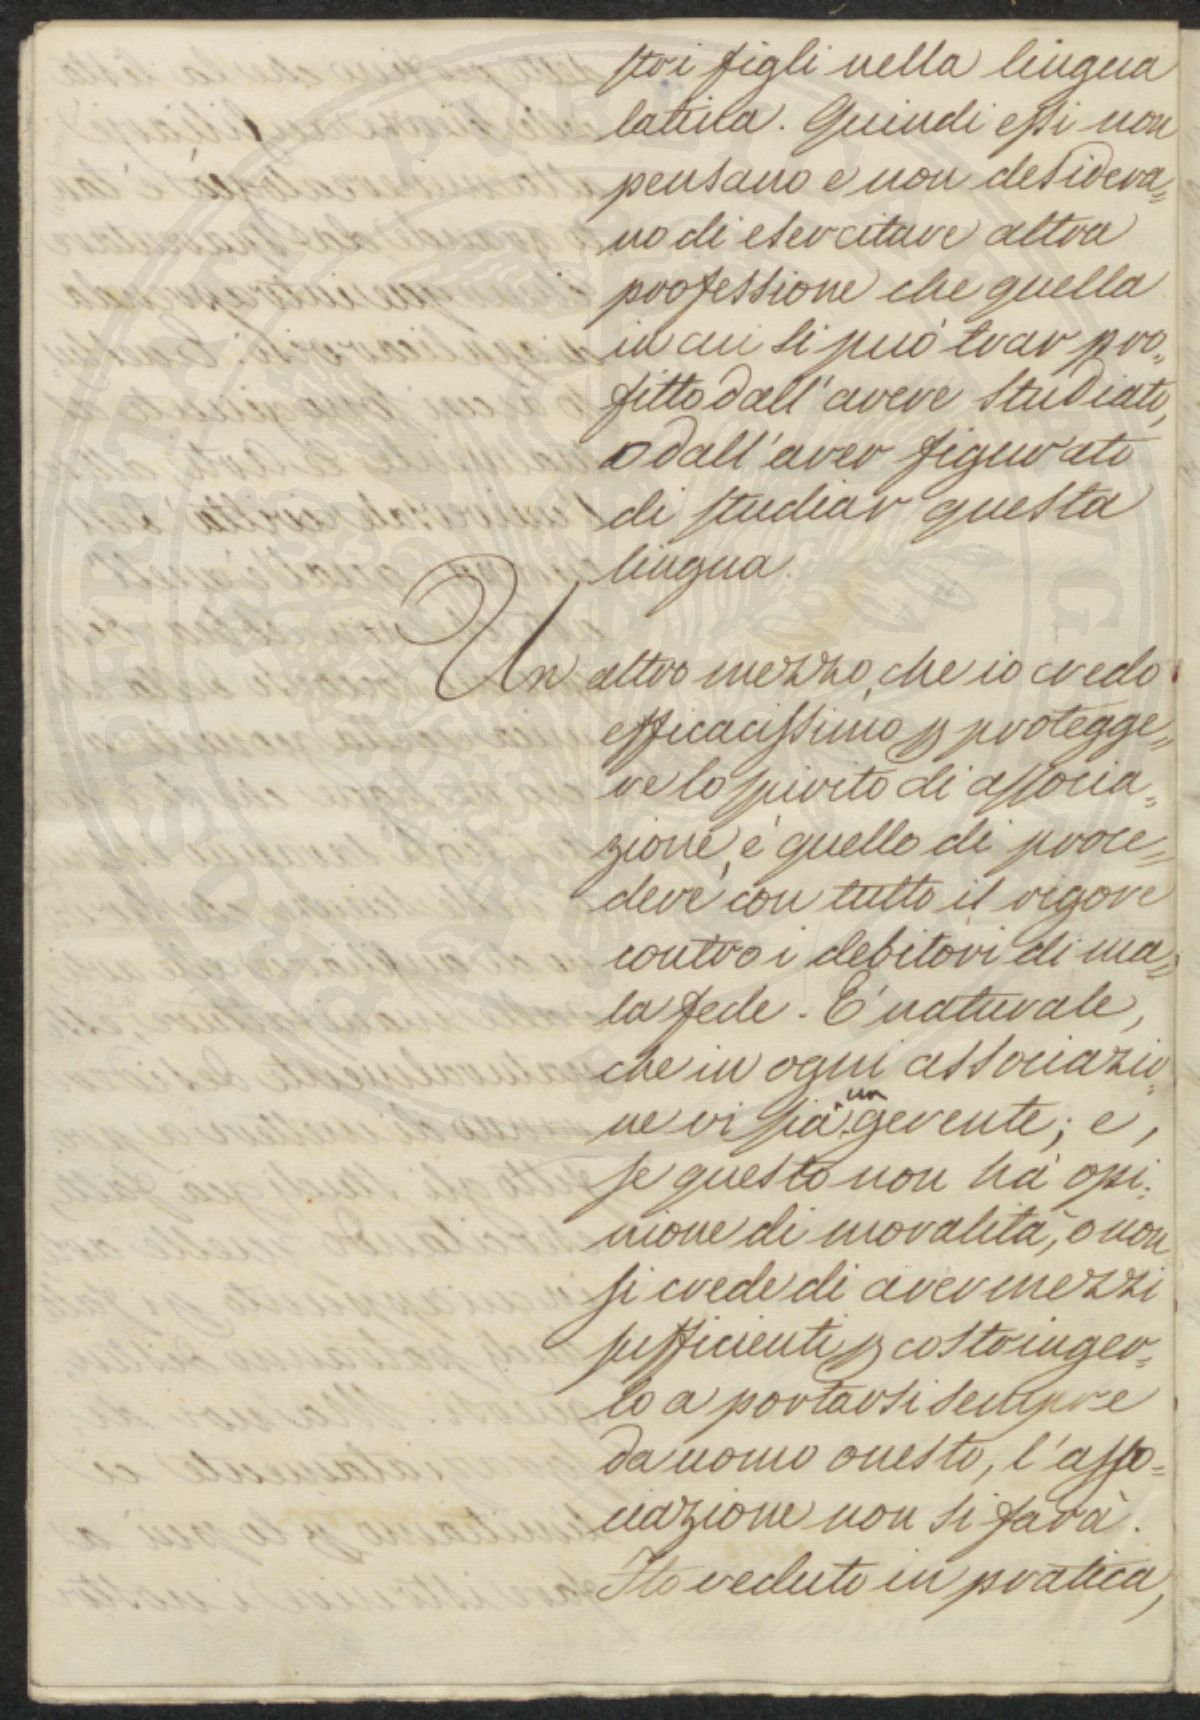 stri figli nella lingua
latina. Quindi essi non
pensano e non desidera=
no di esercitare altra
professione che quella
in cui si può trar pro=
fitto dall'avere studiato,
o dall'aver figurato
di studiar questa
lingua.
Un altro mezzo, che io credo
efficacissimo p protegge=
re lo spirito di associa=
zione, è quello di proce=
dere con tutto il rigore
contro i debitori di ma=
la fede. E' naturale,
che in ogni associazio=
ne vi sia un gerente; e,
se questo non hà opi=
nione di moralità, o non
si crede di aver mezzi
sufficienti p costringer=
lo a portarsi sempre
da uomo onesto, l'asso=
ciazione non si farà.
Ho veduto in pratica,